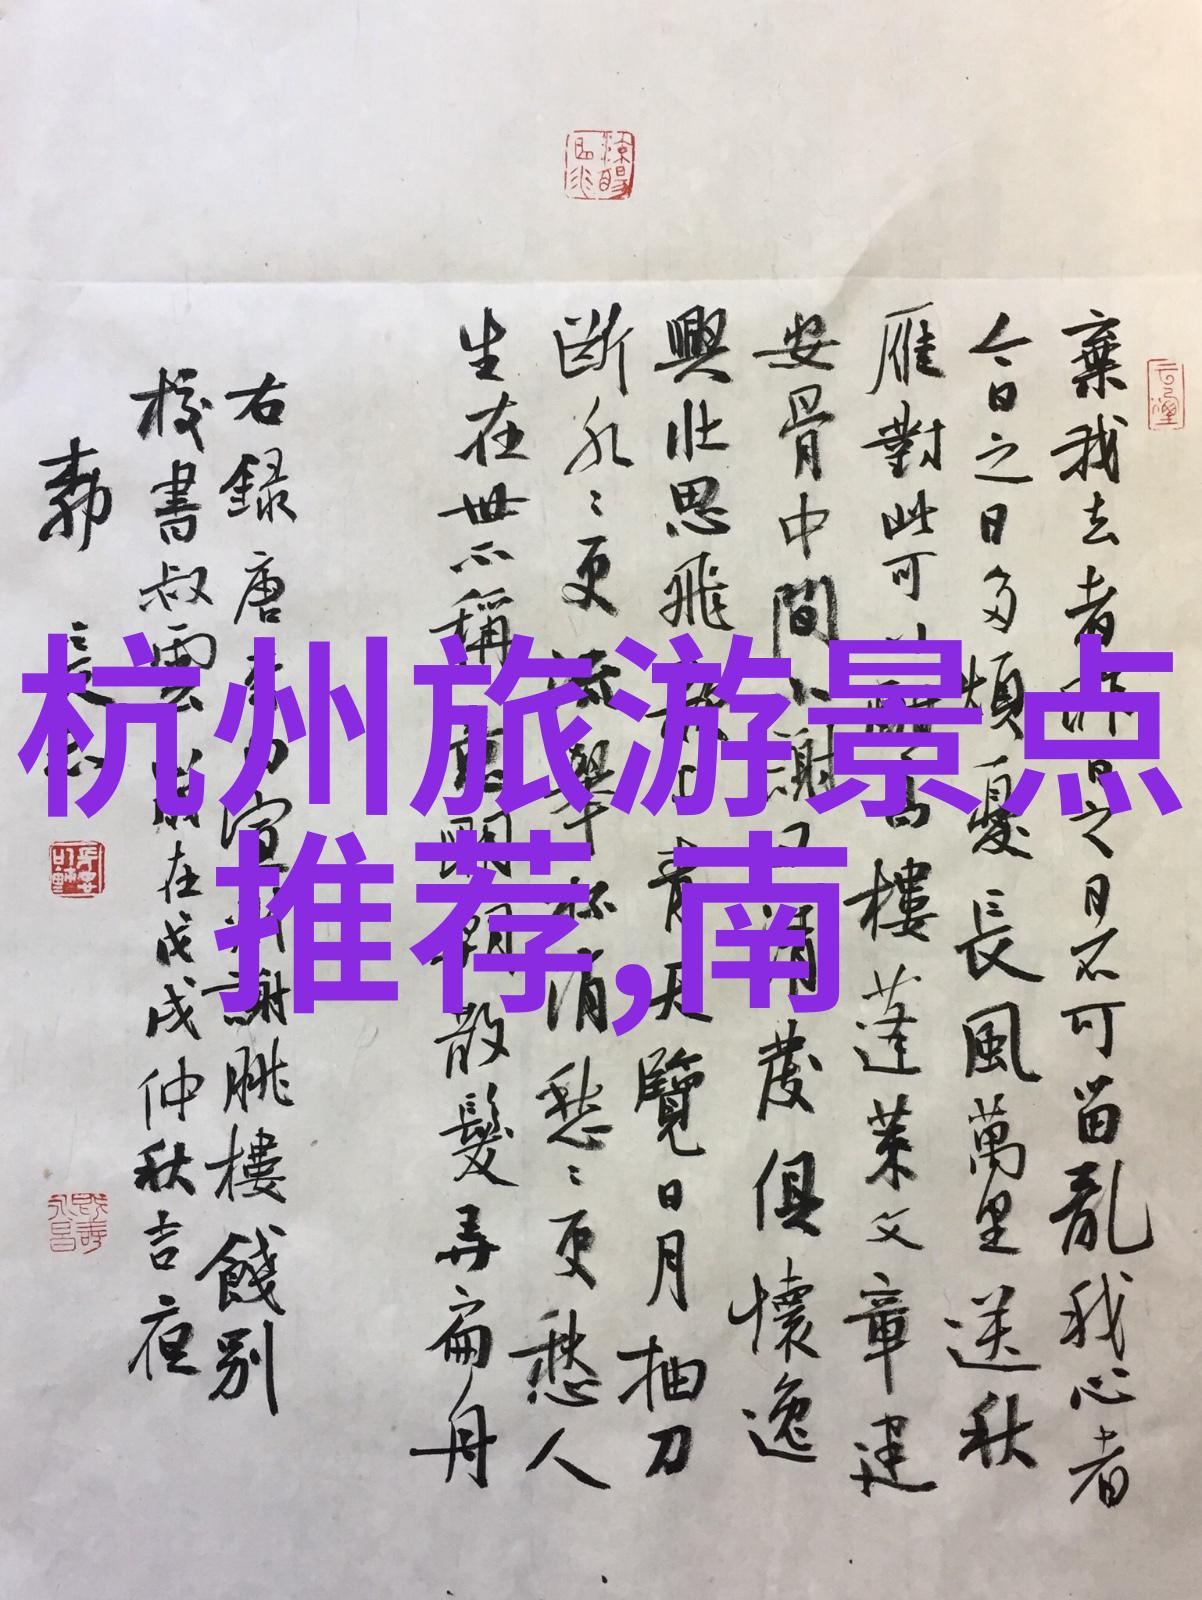 杭州旅游景点
推荐,南
棄我去者昨日之日不可留亂我心者
今日之日多煩憂長風萬里送秋
雁對此可以酣高樓蓬萊文章建
安骨中間小謝又清發俱懷逸
興壯思飛欲上青天覽日月抽刀
断水〻更流舉杯消愁〻更愁人
生在世不稱意明朝散髮弄扁舟
右録唐李白宣州謝朓樓餞別
校書叔雲歲在戊戌仲秋吉夜